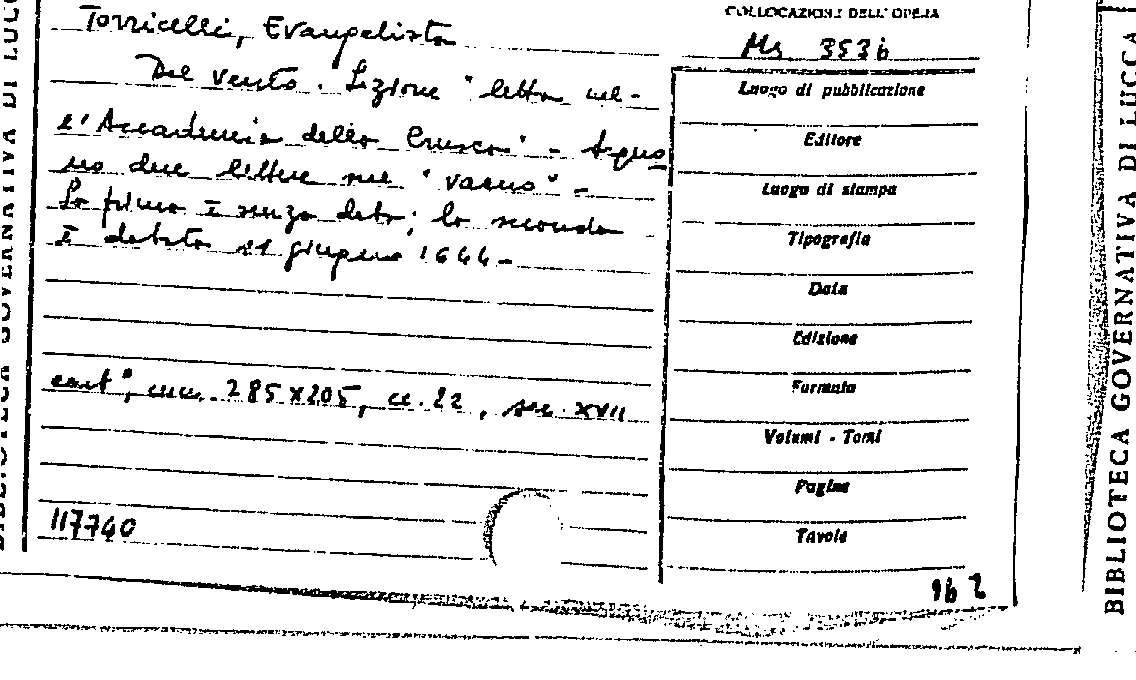 BIBLIOTECA GOVERNATIVA DI LUCC
Torricelli, Evangelista
Del vento. Lezione "letta nel-
l'Accademia della Crusca" - Seguo
no due lettere sul "vacuo" -
La prima è senza data; la seconda
è datata 11 giugno 1644 -
cart., mm. 285x205, cc. 22, sec. XVII
117740
COLLOCAZIONE DELL'OPERA
Ms 3536
Luogo di pubblicazione
Editore
Luogo di stampa
Tipografia
Data
Edizione
Formato
Volumi - Tomi
Pagine
Tavole
BIBLIOTECA GOVERNATIVA DI LUCCA